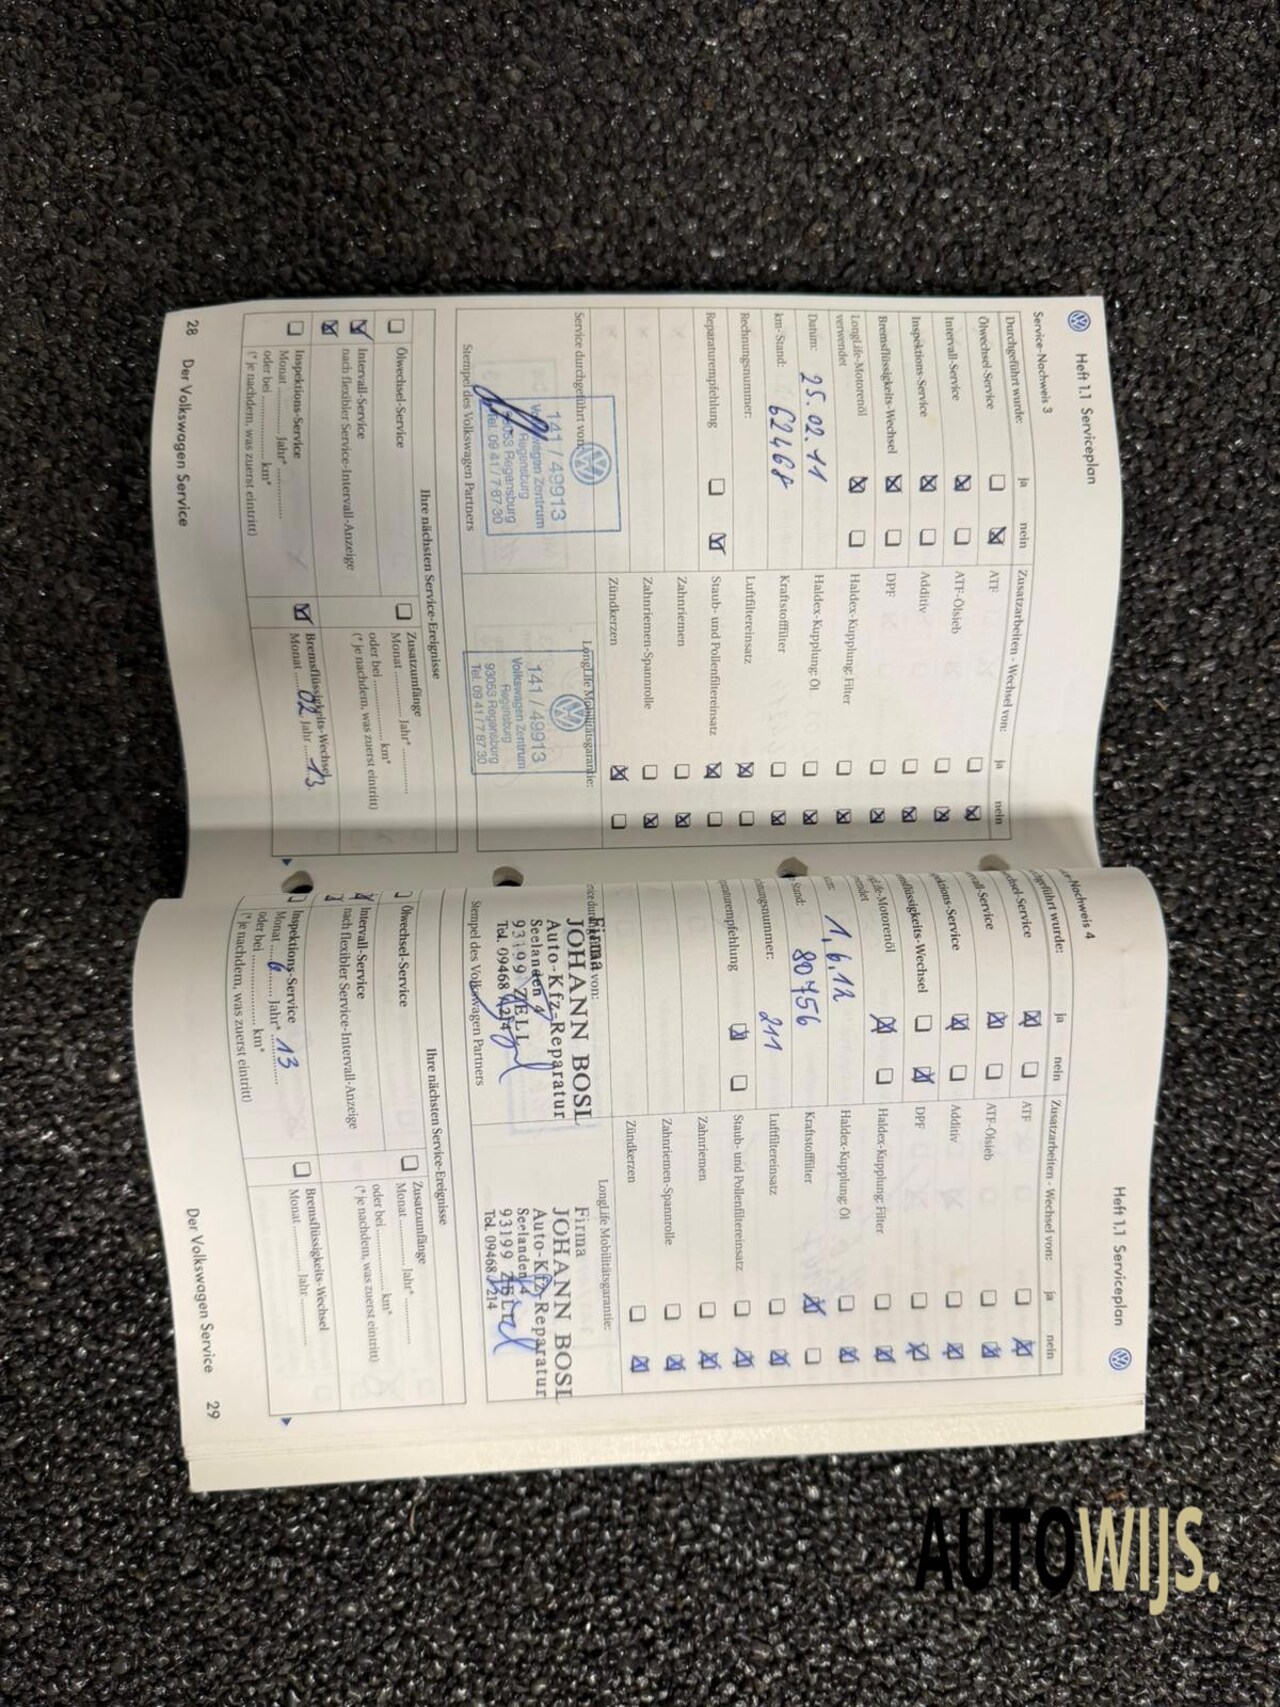 Heft 1.1 Serviceplan
Service-Nachweis 3
Durchgeführt wurde: ja nein
Ölwechsel-Service
Intervall-Service
Inspektions-Service
Bremsflüssigkeits-Wechsel
LongLife-Motorenöl
verwendet
Datum: 25.02.11
km-Stand: 62468
Rechnungsnummer:
Reparaturempfehlung
Service durchgeführt von:
141 / 49913
Volkswagen Zentrum
Regensburg
93053 Regensburg
Tel. 09 41 / 7 87 30
Stempel des Volkswagen Partners
Zusatzarbeiten - Wechsel von: ja nein
ATF
ATF-Ölsieb
Additiv
DPF
Haldex-Kupplung: Filter
Haldex-Kupplung: Öl
Kraftstofffilter
Luftfiltereinsatz
Staub- und Pollenfiltereinsatz
Zahnriemen
Zahnriemen-Spannrolle
Zündkerzen
LongLife Mobilitätsgarantie:
141 / 49913
Volkswagen Zentrum
Regensburg
93053 Regensburg
Tel. 09 41 / 7 87 30
Ihre nächsten Service-Ereignisse
Ölwechsel-Service
Intervall-Service
nach flexibler Service-Intervall-Anzeige
Inspektions-Service
Monat .......... Jahr* ..........
oder bei .......... km*
(* je nachdem, was zuerst eintritt)
Zusatzumfänge
Monat .......... Jahr* ..........
oder bei .......... km*
(* je nachdem, was zuerst eintritt)
Bremsflüssigkeits-Wechsel
Monat 02 Jahr 13
28 Der Volkswagen Service
Heft 1.1 Serviceplan
Nachweis 4
geführt wurde: ja nein
chsel-Service
vall-Service
ektions-Service
nsflüssigkeits-Wechsel
Life-Motorenöl
wendet
1.6.12
Stand: 80756
nungsnummer: 211
araturempfehlung
Firma
JOHANN BOSL
Auto-Kfz-Reparatur
Seelanden 4
93199 ZELL
Tel. 09468 / 214
Stempel des Volkswagen Partners
Zusatzarbeiten - Wechsel von: ja nein
ATF
ATF-Ölsieb
Additiv
DPF
Haldex-Kupplung: Filter
Haldex-Kupplung: Öl
Kraftstofffilter
Luftfiltereinsatz
Staub- und Pollenfiltereinsatz
Zahnriemen
Zahnriemen-Spannrolle
Zündkerzen
LongLife Mobilitätsgarantie:
Firma
JOHANN BOSL
Auto-Kfz-Reparatur
Seelanden 4
93199 ZELL
Tel. 09468 / 214
Ihre nächsten Service-Ereignisse
Ölwechsel-Service
Intervall-Service
nach flexibler Service-Intervall-Anzeige
Inspektions-Service
Monat 6 Jahr* 13
oder bei .......... km*
(* je nachdem, was zuerst eintritt)
Zusatzumfänge
Monat .......... Jahr* ..........
oder bei .......... km*
(* je nachdem, was zuerst eintritt)
Bremsflüssigkeits-Wechsel
Monat .......... Jahr ..........
Der Volkswagen Service 29
AUTOWIJS.